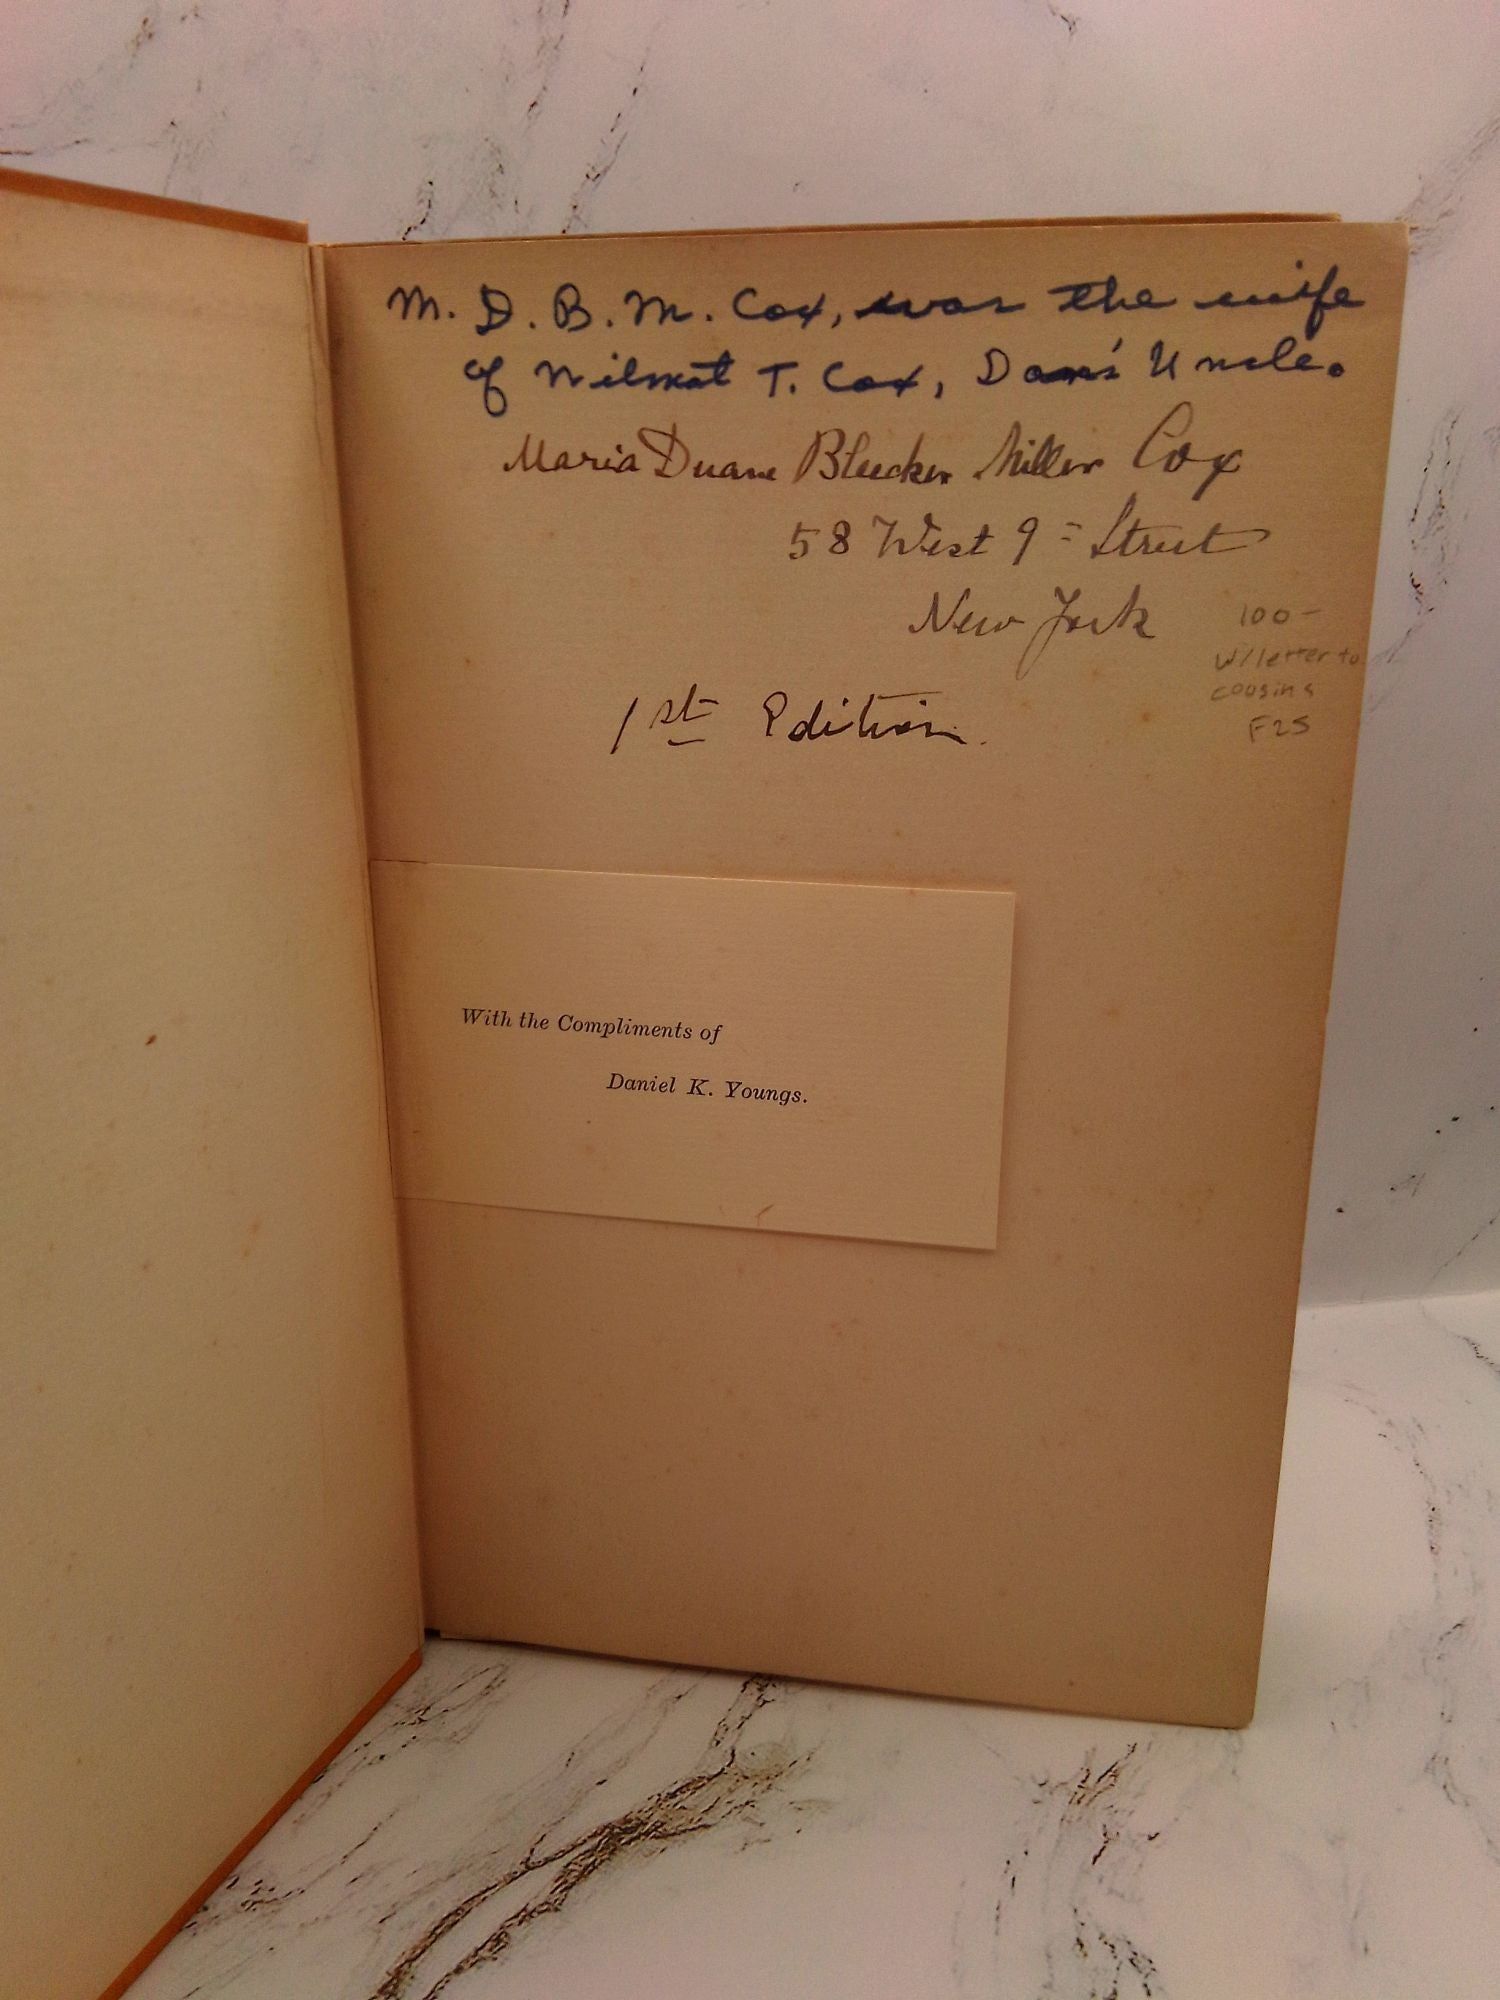 M. D. B. M. Cox, was the wife
of Wilmot T. Cox, Dan's Uncle.
Maria Duane Bleecker Miller Cox
58 West 9= Street
New York
100-
W/letter to
cousins
F25
1st Edition.
With the Compliments of
Daniel K. Youngs.